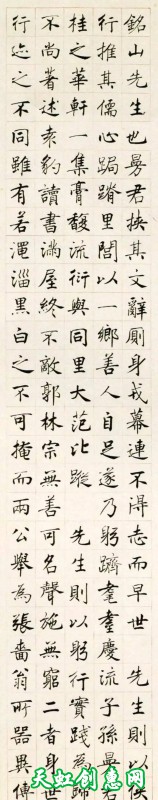 銘山先生也曩君挾其文辭廁身戎幕連不得志而早世　先生則以
行推其儒心跼蹐里閭以一鄉善人自足遂乃躬躋耄耋慶流子孫曩君
桂之華軒一集膏馥流衍與同里大范比蹤　先生則以躬行實踐為歸
不尚著述袁豹讀書滿屋終不敵郭林宗無善可名聲施無窮二者身世
行迹之不同雖有若澠淄黑白之不可掩而兩公舉為張嗇翁所器異傳
天虹创意网